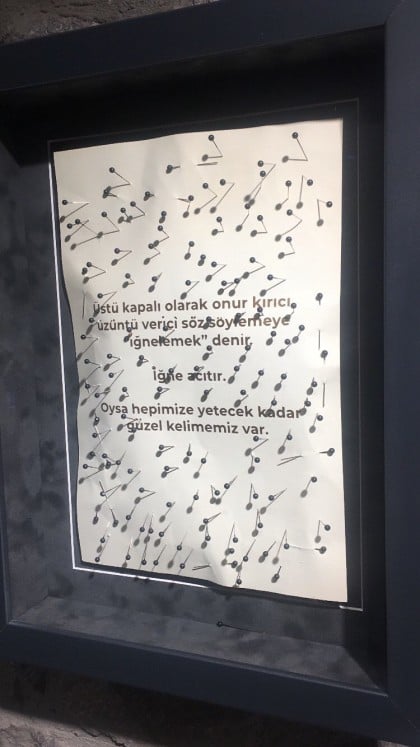 Üstü kapalı olarak onur kırıcı,
üzüntü verici söz söylemeye
iğnelemek” denir.
İğne acıtır.
Oysa hepimize yetecek kadar
güzel kelimemiz var.